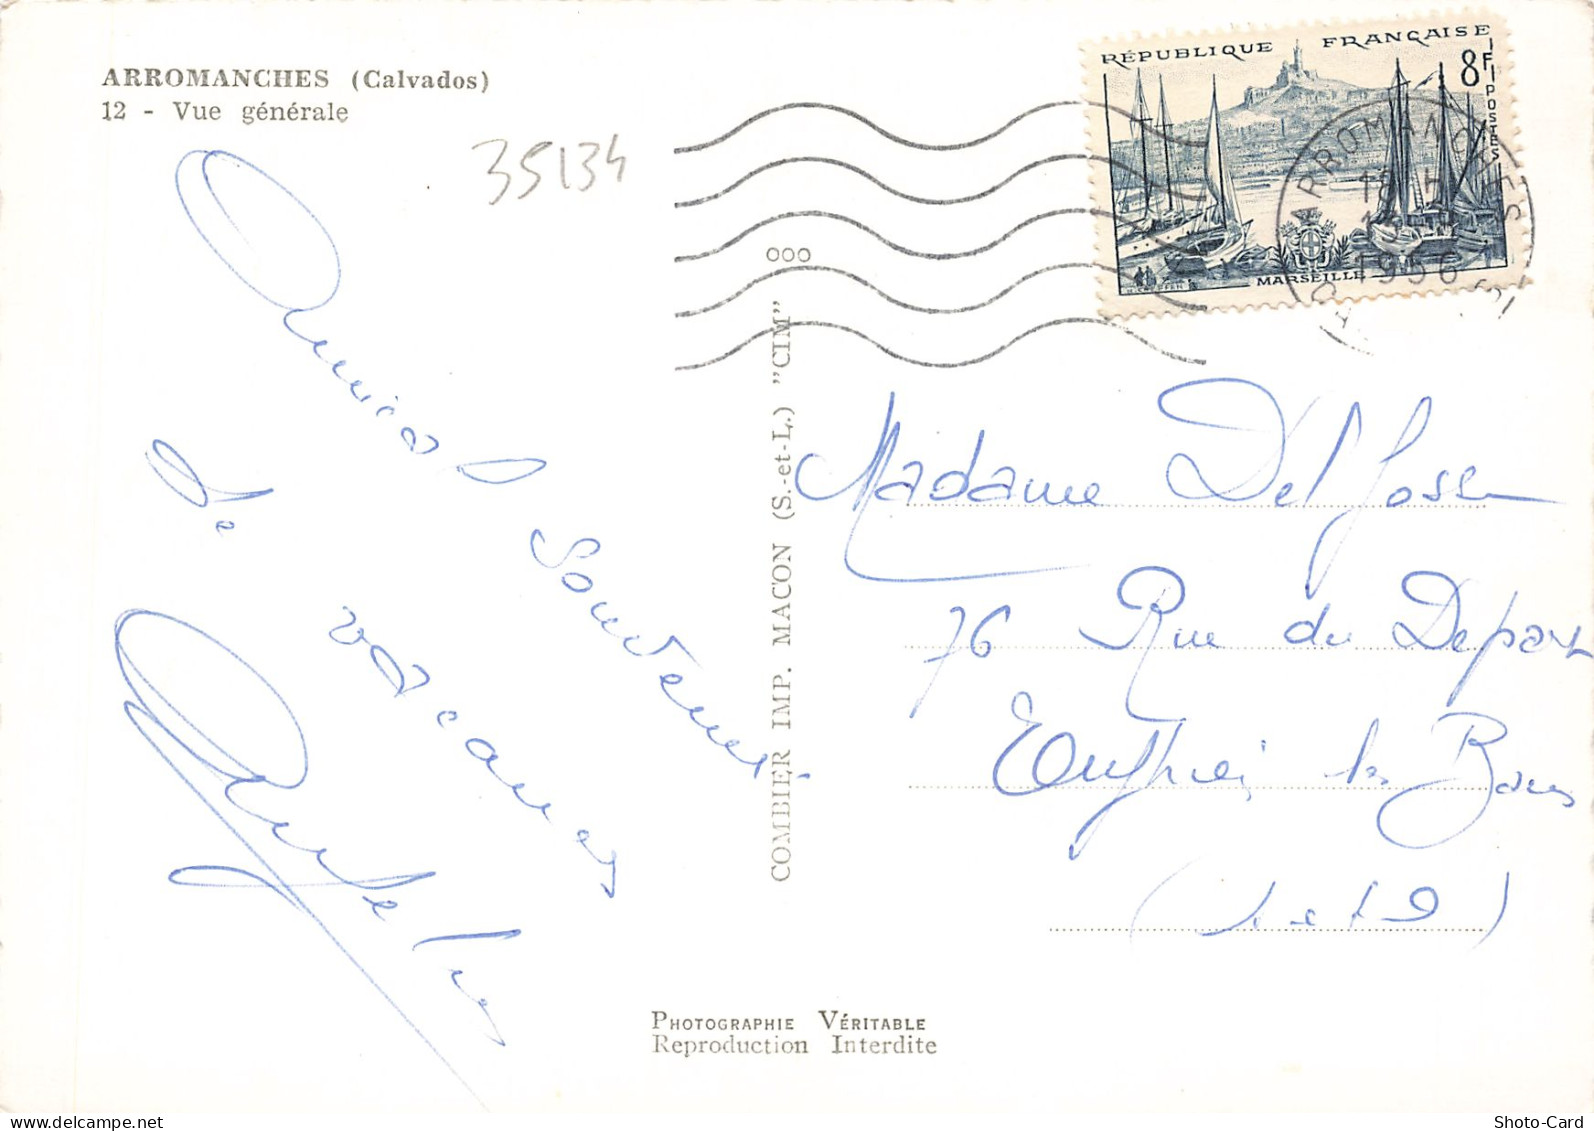 ARROMANCHES (Calvados)
12 - Vue générale
35134
RÉPUBLIQUE FRANÇAISE
8F
POSTES
MARSEILLE
ARROMANCHES
18 H
13
1956
Amical Souvenir
de
vacances
Madame Delfosse
76 Rue du Depart
Enghien les Bains
(S et O)
COMBIER IMP. MACON (S.-et-L.) "CIM"
PHOTOGRAPHIE VÉRITABLE
Reproduction Interdite
delcampe.net
Shoto-Card